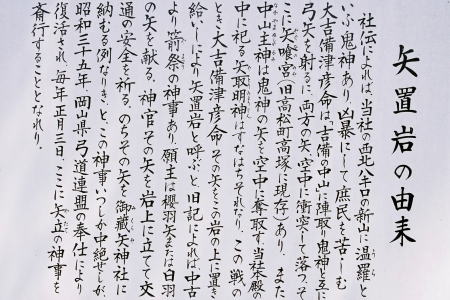 矢置岩の由来
社伝によれば、当社の西北八キロの新山に温羅と
いふ鬼神あり、凶暴にして庶民を苦しむ
大吉備津彦命は、吉備の中山に陣取り鬼神と互に
弓矢を射るに、両方の矢空中に衝突して落つ。そ
こに矢喰宮(旧高松町高塚に現存)あり。また
中山主神は鬼神の矢を空中に奪取す。当社殿の
中に祀る矢取明神はすなはちそれなり。この戦の
とき大吉備津彦命その矢をこの岩の上に置き
給ひしにより矢置岩と呼ぶと。旧記によれば中古
より箭祭の神事あり、願主は櫻羽矢または白羽
の矢を献る。神官その矢を岩上に立てて交
通の安全を祈る。のちその矢を御蔵矢神社に
納むる例なりき、と。この神事いつしか中絶せしが、
昭和三十五年、岡山県弓道連盟の奉仕により
復活され、毎年正月三日、ここに矢立の神事を
斎行することとなれり。